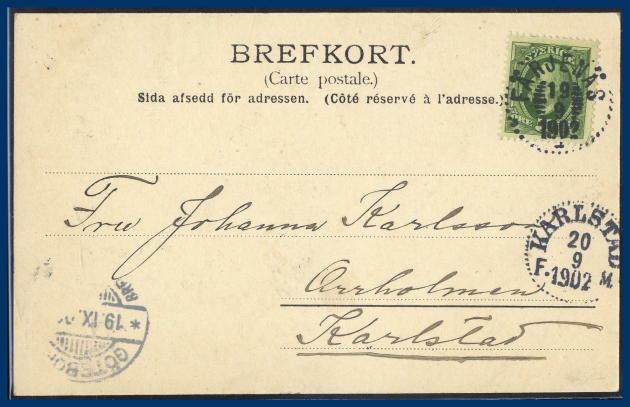 BREFKORT.
(Carte postale.)
Sida afsedd för adressen. (Côté réservé à l'adresse.)
SVERIGE
FÄRJENÄS
19
9
1902
1
Fru Johanna Karlsson
Orrholmen
Karlstad
KARLSTAD
20
9
F. 1902 M.
* 19. IX.
GÖTEBORG